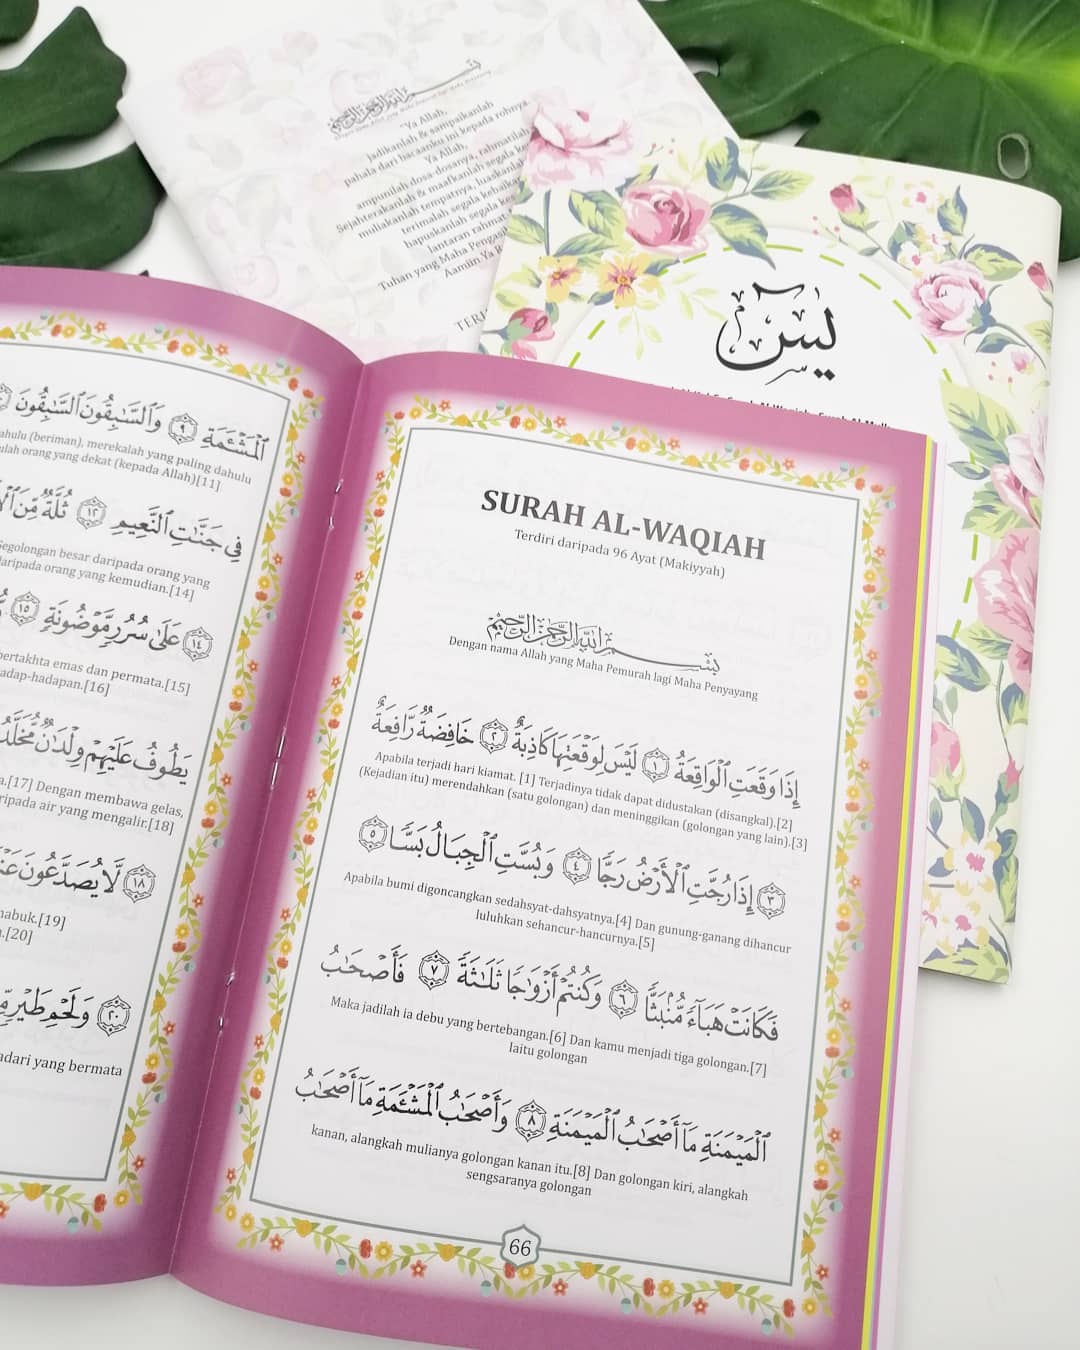 "Ya Allah,
Jadikanlah & sampaikanlah
pahala dari bacaanku ini kepada rohnya.
Ya Allah,
ampunilah dosa-dosanya, rahmatilah
Sejahterakanlah & maafkanlah segala
muliakanlah tempatnya, luaskanlah
terimalah segala
hapuskanlah segala
lantaran
Tuhan yang Maha
Aamiin Ya
يس
SURAH AL-WAQIAH
Terdiri daripada 96 Ayat (Makiyyah)
بِسْمِ اللَّهِ الرَّحْمَٰنِ الرَّحِيمِ
Dengan nama Allah yang Maha Pemurah lagi Maha Penyayang
إِذَا وَقَعَتِ ٱلْوَاقِعَةُ ١ لَيْسَ لِوَقْعَتِهَا كَاذِبَةٌ ٢ خَافِضَةٌ رَّافِعَةٌ
Apabila terjadi hari kiamat. [1] Terjadinya tidak dapat didustakan (disangkal).[2]
(Kejadian itu) merendahkan (satu golongan) dan meninggikan (golongan yang lain).[3]
٣ إِذَا رُجَّتِ ٱلْأَرْضُ رَجًّا ٤ وَبُسَّتِ ٱلْجِبَالُ بَسًّا ٥
Apabila bumi digoncangkan sedahsyat-dahsyatnya.[4] Dan gunung-ganang dihancur
luluhkan sehancur-hancurnya.[5]
فَكَانَتْ هَبَآءً مُّنۢبَثًّا ٦ وَكُنتُمْ أَزْوَٰجًا ثَلَـٰثَةً ٧ فَأَصْحَـٰبُ
Maka jadilah ia debu yang bertebangan.[6] Dan kamu menjadi tiga golongan.[7]
laitu golongan
ٱلْمَيْمَنَةِ مَآ أَصْحَـٰبُ ٱلْمَيْمَنَةِ ٨ وَأَصْحَـٰبُ ٱلْمَشْـَٔمَةِ مَآ أَصْحَـٰبُ
kanan, alangkah mulianya golongan kanan itu.[8] Dan golongan kiri, alangkah
sengsaranya golongan
66
ٱلْمَشْـَٔمَةِ ٩ وَٱلسَّـٰبِقُونَ ٱلسَّـٰبِقُونَ
(beriman), merekalah yang paling dahulu
orang yang dekat (kepada Allah)[11]
فِى جَنَّـٰتِ ٱلنَّعِيمِ ١٢ ثُلَّةٌ مِّنَ
Segolongan besar daripada orang yang
daripada orang yang kemudian.[14]
١٤ عَلَىٰ سُرُرٍ مَّوْضُونَةٍ ١٥
bertakhta emas dan permata.[15]
[16]
يَطُوفُ عَلَيْهِمْ وِلْدَٰنٌ
[17] Dengan membawa gelas,
air yang mengalir.[18]
١٨ لَّا يُصَدَّعُونَ
[19]
[20]
٢٠ وَلَحْمِ طَيْرٍ
yang bermata